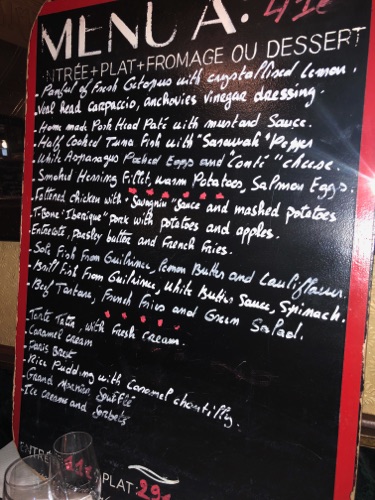 MENU A: 41€
ENTRÉE+PLAT+FROMAGE OU DESSERT
- Panful of Fresh Octopus with crystallised Lemon.
- Veal head carpaccio, anchovies vinegar dressing.
- Home made Pork Head Paté with mustard Sauce.
- Half Cooked Tuna Fish with "Sarawak" Pepper
- White Asparagus Poched Eggs and "Conté" cheese.
- Smoked Herring Fillet, warm Potatoes, Salmon Eggs.
- Fattened chicken with "Savagnin" Sauce and mashed potatoes
- T-Bone "Iberique" Pork with potatoes and apples.
- Entrecote, Parsley butter and French Fries.
- Sole Fish From Guilvinec, Lemon Butter and Cauliflower.
- Brill Fish From Guilvinec, White Butter Sauce, Spinach.
- Beef Tartare, French Fries and Green Salad.
- Tarte Tatin, with Fresh Cream.
- Caramel cream
- Paris Brest
- Rice Pudding with Caramel chantilly.
- Grand Marnier Soufflé
- Ice creams and Sorbets
ENTRÉE PLAT 29€